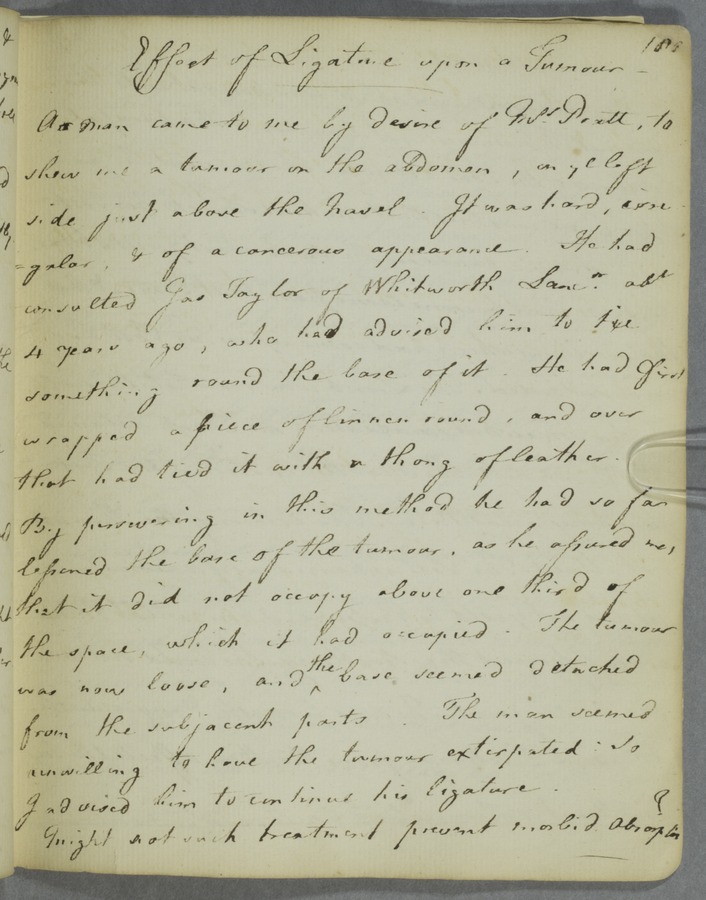 Effect of Ligature upon a Tumour -
A man came to me by desire of Mrs Pratt, to
shew me a tumour on the abdomen, on ye left
side just above the Navel. It was hard, irre
=gular, & of a cancerous appearance. He had
consulted Jas Taylor of Whitworth Lancr. abt
4 years ago, who had advised him to tye
something round the base of it. He had first
wrapped a piece of linnen round, and over
that had tied it with a thong of leather.
By persevering in this method he had so far
lessened the base of the tumour, as he assured me,
that it did not occupy above one third of
the space, which it had occupied. The tumour
was now loose, and the base seemed detached
from the subjacent parts. The man seemed
unwilling to have the tumour extirpated: so
I advised him to continue his ligature.
Might not such treatment prevent morbid absorption?